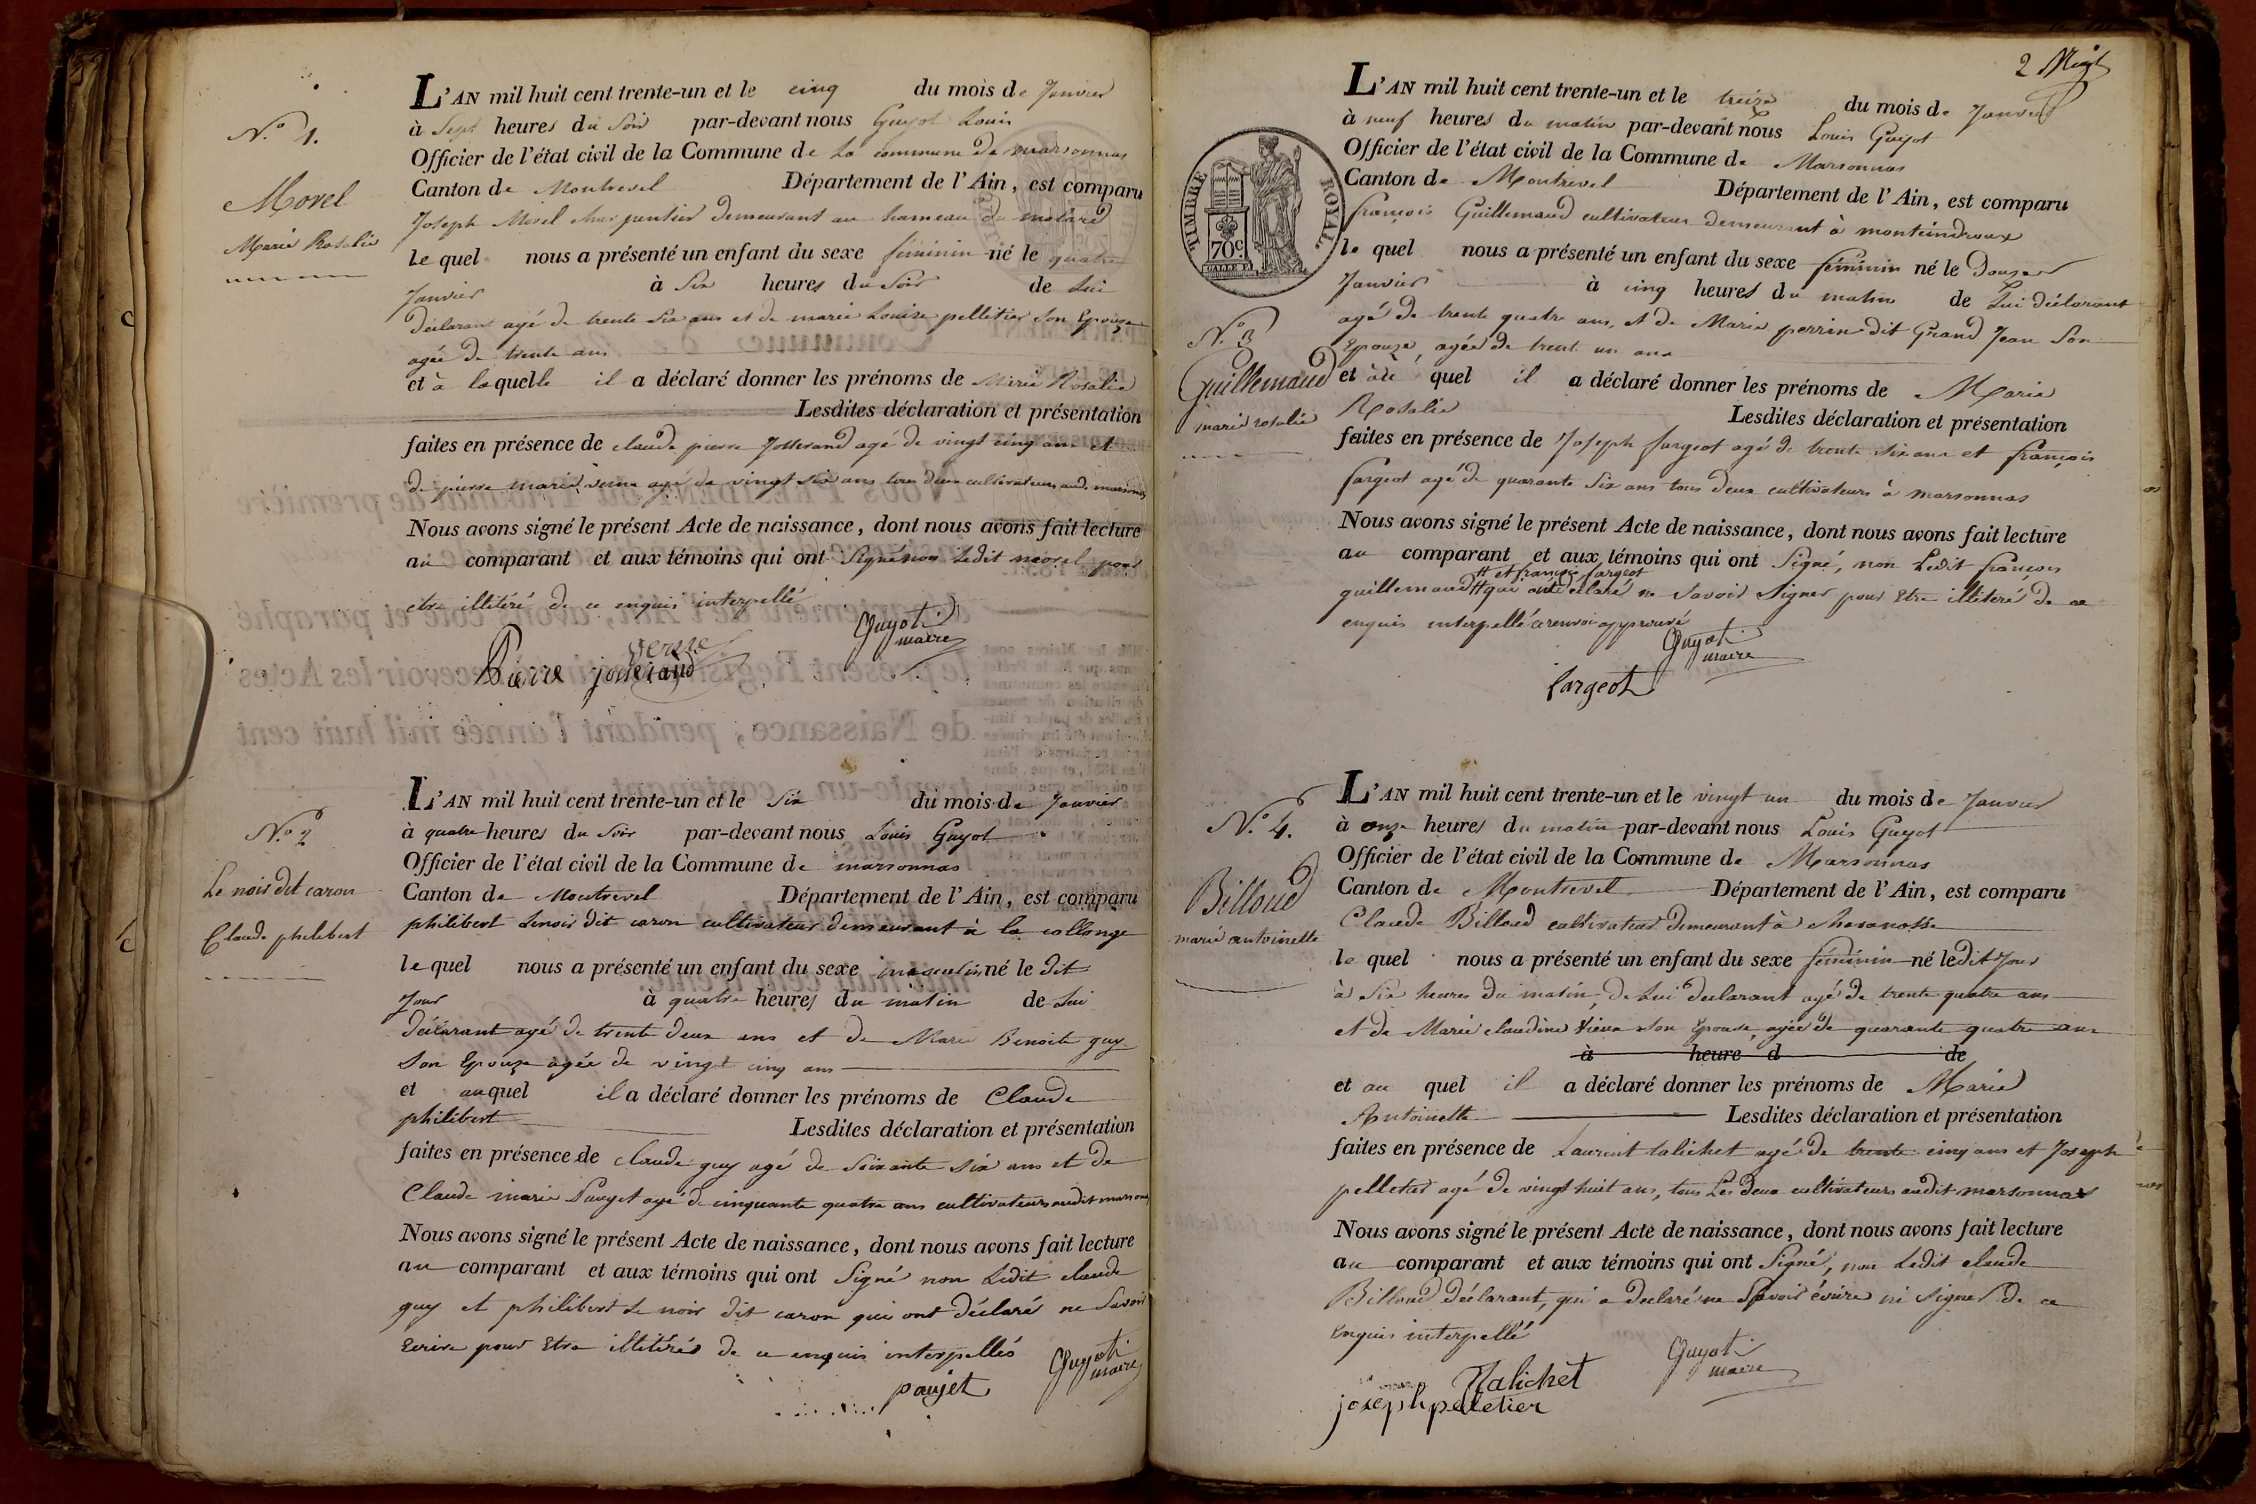 N.° 1.
Morel
Marie Rosalie
L'AN mil huit cent trente-un et le cinq du mois de Janvier
à Sept heures du Soir par-devant nous Guyot Louis
Officier de l'état civil de la Commune de La commune de marsonnas
Canton de Montrevel Département de l'Ain, est comparu
Joseph Morel charpentier demeurant au hameau du
le quel nous a présenté un enfant du sexe féminin né le quatre
Janvier à Six heures du Soir de Lui
déclarant agé de trente Six ans et de marie Louise pelletier Son Epouse
agée de trente ans
et à laquelle il a déclaré donner les prénoms de Marie Rosalie
Lesdites déclaration et présentation
faites en présence de claude pierre Josserand agé de vingt cinq ans et
de pierre marie verne agé de vingt Six ans tous deux cultivateurs audit marsonnas
Nous avons signé le présent Acte de naissance, dont nous avons fait lecture
au comparant et aux témoins qui ont Signé non Ledit morel pour
être illitéré de ce enquis interpellé
verne
Guyot
maire
Pierre josserand
N.° 2
Le noir dit caron
Claude philibert
L'AN mil huit cent trente-un et le Six du mois de Janvier
à quatre heures du Soir par-devant nous Louis Guyot
Officier de l'état civil de la Commune de marsonnas
Canton de Montrevel Département de l'Ain, est comparu
philibert Lenoir dit caron cultivateur demeurant à la collonge
le quel nous a présenté un enfant du sexe masculin né le dit
Jour à quatre heures du matin de Lui
déclarant agé de trente deux ans et de Marie Benoite guy
Son Epouse agée de vingt cinq ans
et auquel il a déclaré donner les prénoms de Claude
philibert Lesdites déclaration et présentation
faites en présence de claude guy agé de Soixante Six ans et de
Claude marie Paujet agé de cinquante quatre ans cultivateurs audit marsonnas
Nous avons signé le présent Acte de naissance, dont nous avons fait lecture
au comparant et aux témoins qui ont Signé non Ledit claude
guy et philibert Le noir dit caron qui ont déclaré ne Savoir
Ecrire pour Etre illitérés de ce enquis interpellés
Guyot
maire
paujet
2
TIMBRE ROYAL
70c
N.° 3
Guillemaud
marie rosalie
L'AN mil huit cent trente-un et le treize du mois de Janvier
à neuf heures du matin par-devant nous Louis Guyot
Officier de l'état civil de la Commune de Marsonnas
Canton de Montrevel Département de l'Ain, est comparu
françois Guillemaud cultivateur demeurant à monteindroux
le quel nous a présenté un enfant du sexe féminin né le Douze
Janvier à cinq heures du matin de Lui déclarant
agé de trente quatre ans, et de Marie perrin dit Grand Jean Son
Epouse, agée de trent un ans
et àlle quel il a déclaré donner les prénoms de Marie
Rosalie Lesdites déclaration et présentation
faites en présence de Joseph fargeot agé de trente Six ans et françois
fargeot agé de quarante Six ans tous deux cultivateurs à marsonnas
Nous avons signé le présent Acte de naissance, dont nous avons fait lecture
au comparant et aux témoins qui ont Signé, non Ledit françois
# et françois fargeot
guillemaud # qui ont déclaré ne Savoir Signer pour Etre illitéré de ce
enquis interpellé ce renvoi approuvé
Guyot
maire
fargeot
N.° 4.
Billoud
marie antoinette
L'AN mil huit cent trente-un et le vingt un du mois de Janvier
à onze heures du matin par-devant nous Louis Guyot
Officier de l'état civil de la Commune de Marsonnas
Canton de Montrevel Département de l'Ain, est comparu
Claude Billoud cultivateur demeurant à
le quel nous a présenté un enfant du sexe féminin né ledit Jour
à Six heures du matin, de Lui déclarant agé de trente quatre ans
et de Marie claudine Vieux Son Epouse, agée de quarante quatre ans
à heure d de
et au quel il a déclaré donner les prénoms de Marie
Antoinette Lesdites déclaration et présentation
faites en présence de Laurent talichet agé de trente cinq ans et Joseph
pelletier agé de vingt huit ans, tous Les deux cultivateurs audit marsonnas
Nous avons signé le présent Acte de naissance, dont nous avons fait lecture
au comparant et aux témoins qui ont Signé, non Ledit claude
Billoud déclarant, qui a déclaré ne Savoir écrire ni Signer De ce
Enquis interpellé
Guyot
maire
Talichet
joseph peletier